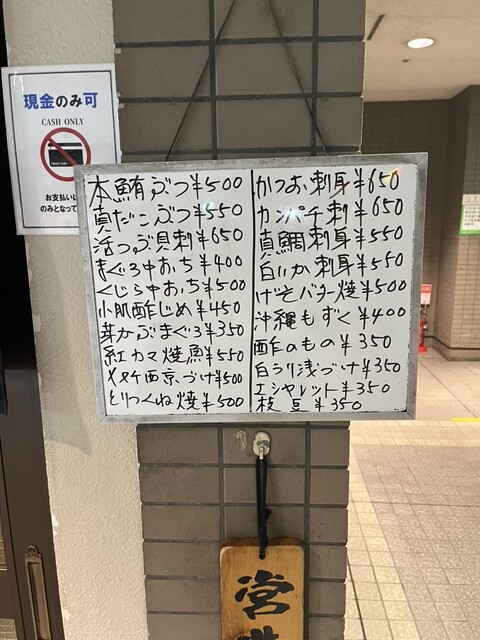 現金のみ可
CASH ONLY
お支払いは
のみとなって
本鮪ぶつ¥500
真だこぶつ¥550
活つぶ貝刺¥650
まぐろ中おち¥400
くじら中おち¥500
小肌酢じめ¥450
芽かぶまぐろ¥350
紅カマ焼魚¥550
西京づけ¥500
とりつくね焼¥500
かつお刺身¥650
カンパチ刺¥650
真鯛刺身¥550
白いか刺身¥550
げそバター焼¥500
沖縄もずく¥400
酢のもの¥350
白うり浅づけ¥350
エシャレット¥350
枝豆¥350
営